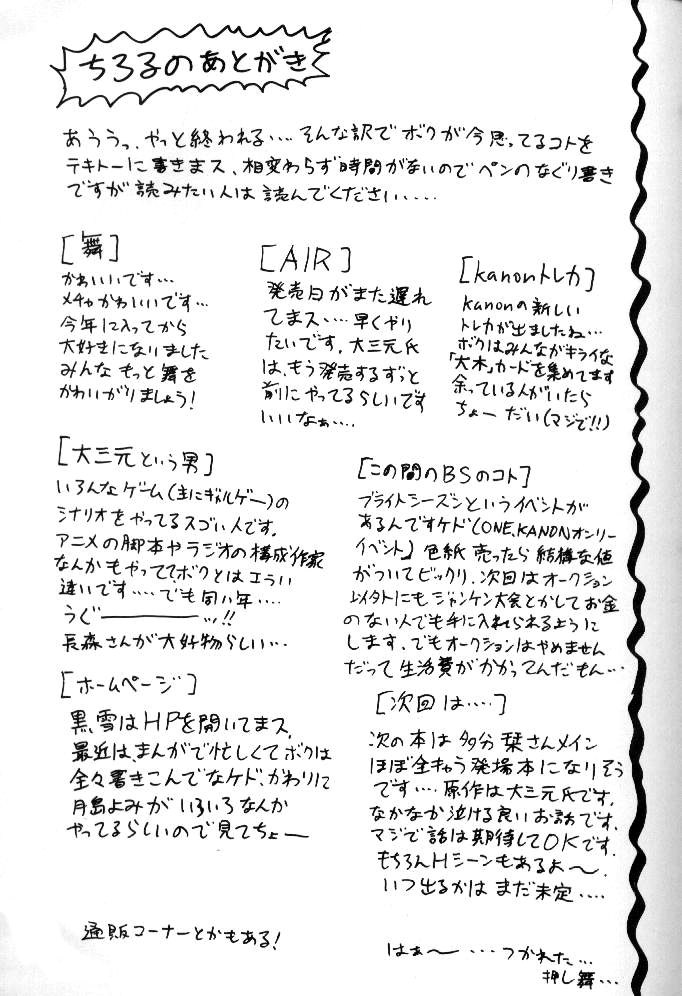 ちろるのあとがき
あううっ、やっと終われる‥‥そんな訳でボクが今思ってるコトを
テキトーに書きまス、相変わらず時間がないのでペンのなぐり書き
ですが読みたい人は読んでください‥‥
[舞]
かわいいです…
メチャかわいいです…
今年に入ってから
大好きになりました
みんなもっと舞を
かわいがりましょう!
[AIR]
発売日がまた遅れ
てまス‥‥早くやり
たいです。大三元氏
は、もう発売するずっと
前にやってるらしいです
いいなぁ‥‥
[kanonトレカ]
kanonの新しい
トレカが出ましたね…
ボクはみんながキライな
「大木」カードを集めてます
余っている人がいたら
ちょーだい(マジで!!)
[大三元という男]
いろんなゲーム(主にギャルゲー)の
シナリオをやってるスゴい人です。
アニメの脚本やラジオの構成作家
なんかもやっててボクとはエラい
違いです‥‥でも同い年‥‥
うぐーーーッ!!
長森さんが大好物らしい…
[この間のBSのコト]
ブライトシーズンというイベントが
あるんですケド(ONE、KANONオンリー
イベント)色紙売ったら結構な値
がついてビックリ、次回はオークション
以外にもジャンケン大会とかしてお金
のない人でも手に入れられるように
します、でもオークションはやめません
だって生活費がかかってんだもん…
[ホームページ]
黒雪はHPを開いてまス、
最近は、まんがで忙しくてボクは
全々書きこんでなケド、かわりに
月島よみがいろいろなんか
やってるらしいので見てちょー
通販コーナーとかもある!
[次回は‥‥]
次の本は多分栞さんメイン
ほぼ全キャラ登場本になりそう
です‥‥原作は大三元氏です。
なかなか泣ける良いお話です。
マジで話は期待してOKです。
もちろんHシーンもあるよ〜。
いつ出るかはまだ未定‥‥
はぁ〜…つかれた…
押し舞…